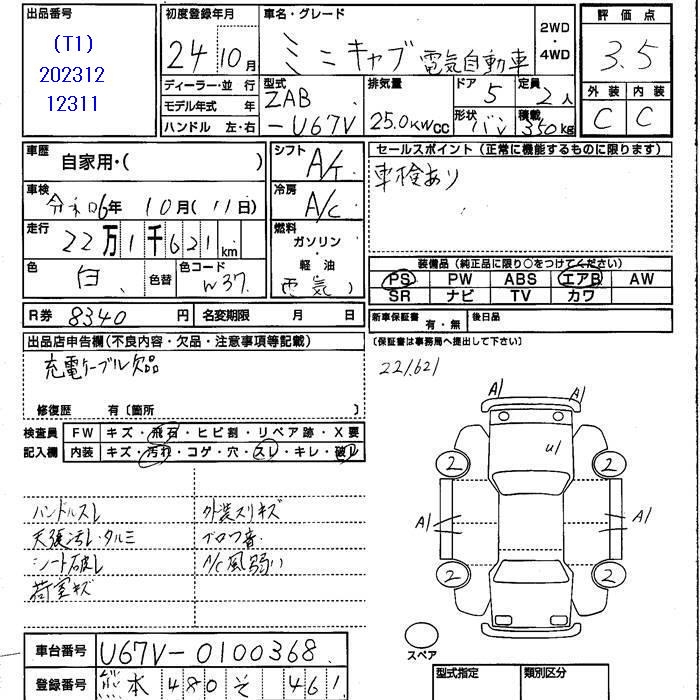 出品番号
(T1)
202312
12311
初度登録年月
24年10月
ディーラー・並 行
モデル年式 年
ハンドル 左・右
車名・グレード
ミニキャブ 電気自動車
2WD
・
4WD
型式
ZAB
-U67V
排気量
25.0KW CC
ドア 5
形状 バン
定員 2人
積載 350kg
評価点
3.5
外装 内装
C C
車歴
自家用・( )
車検
令和6年 10月(11日)
走行
22万1千621km
色 白 色替 色コード W37
シフト A/T
冷房 A/C
燃料
ガソリン
・
軽 油
(電気)
セールスポイント (正常に機能するものに限ります)
車検あり
装備品 (純正品に限り○をつけてください)
PS PW ABS エアB AW
SR ナビ TV カワ
R券 8340 円 名変期限 月 日
新車保証書 有・無 後日品
(保証書は事務局へ提出して下さい)
出品店申告欄(不良内容・欠品・注意事項等記載)
充電ケーブル欠品
修復歴 有〔箇所 〕
221,621
検査員 FW キズ・飛石・ヒビ割・リペア跡・X要
記入欄 内装 キズ・汚れ・コゲ・穴・スレ・キレ・破レ
ハンドルスレ 外装スリキズ
天張汚レ・タルミ ブロワ音
シート破レ A/C風弱い
荷室キズ
A1 A1
U1
2 2
A1 A1
2 2
スペア
車台番号 U67V-0100368
登録番号 熊本 480 そ 461
型式指定 類別区分